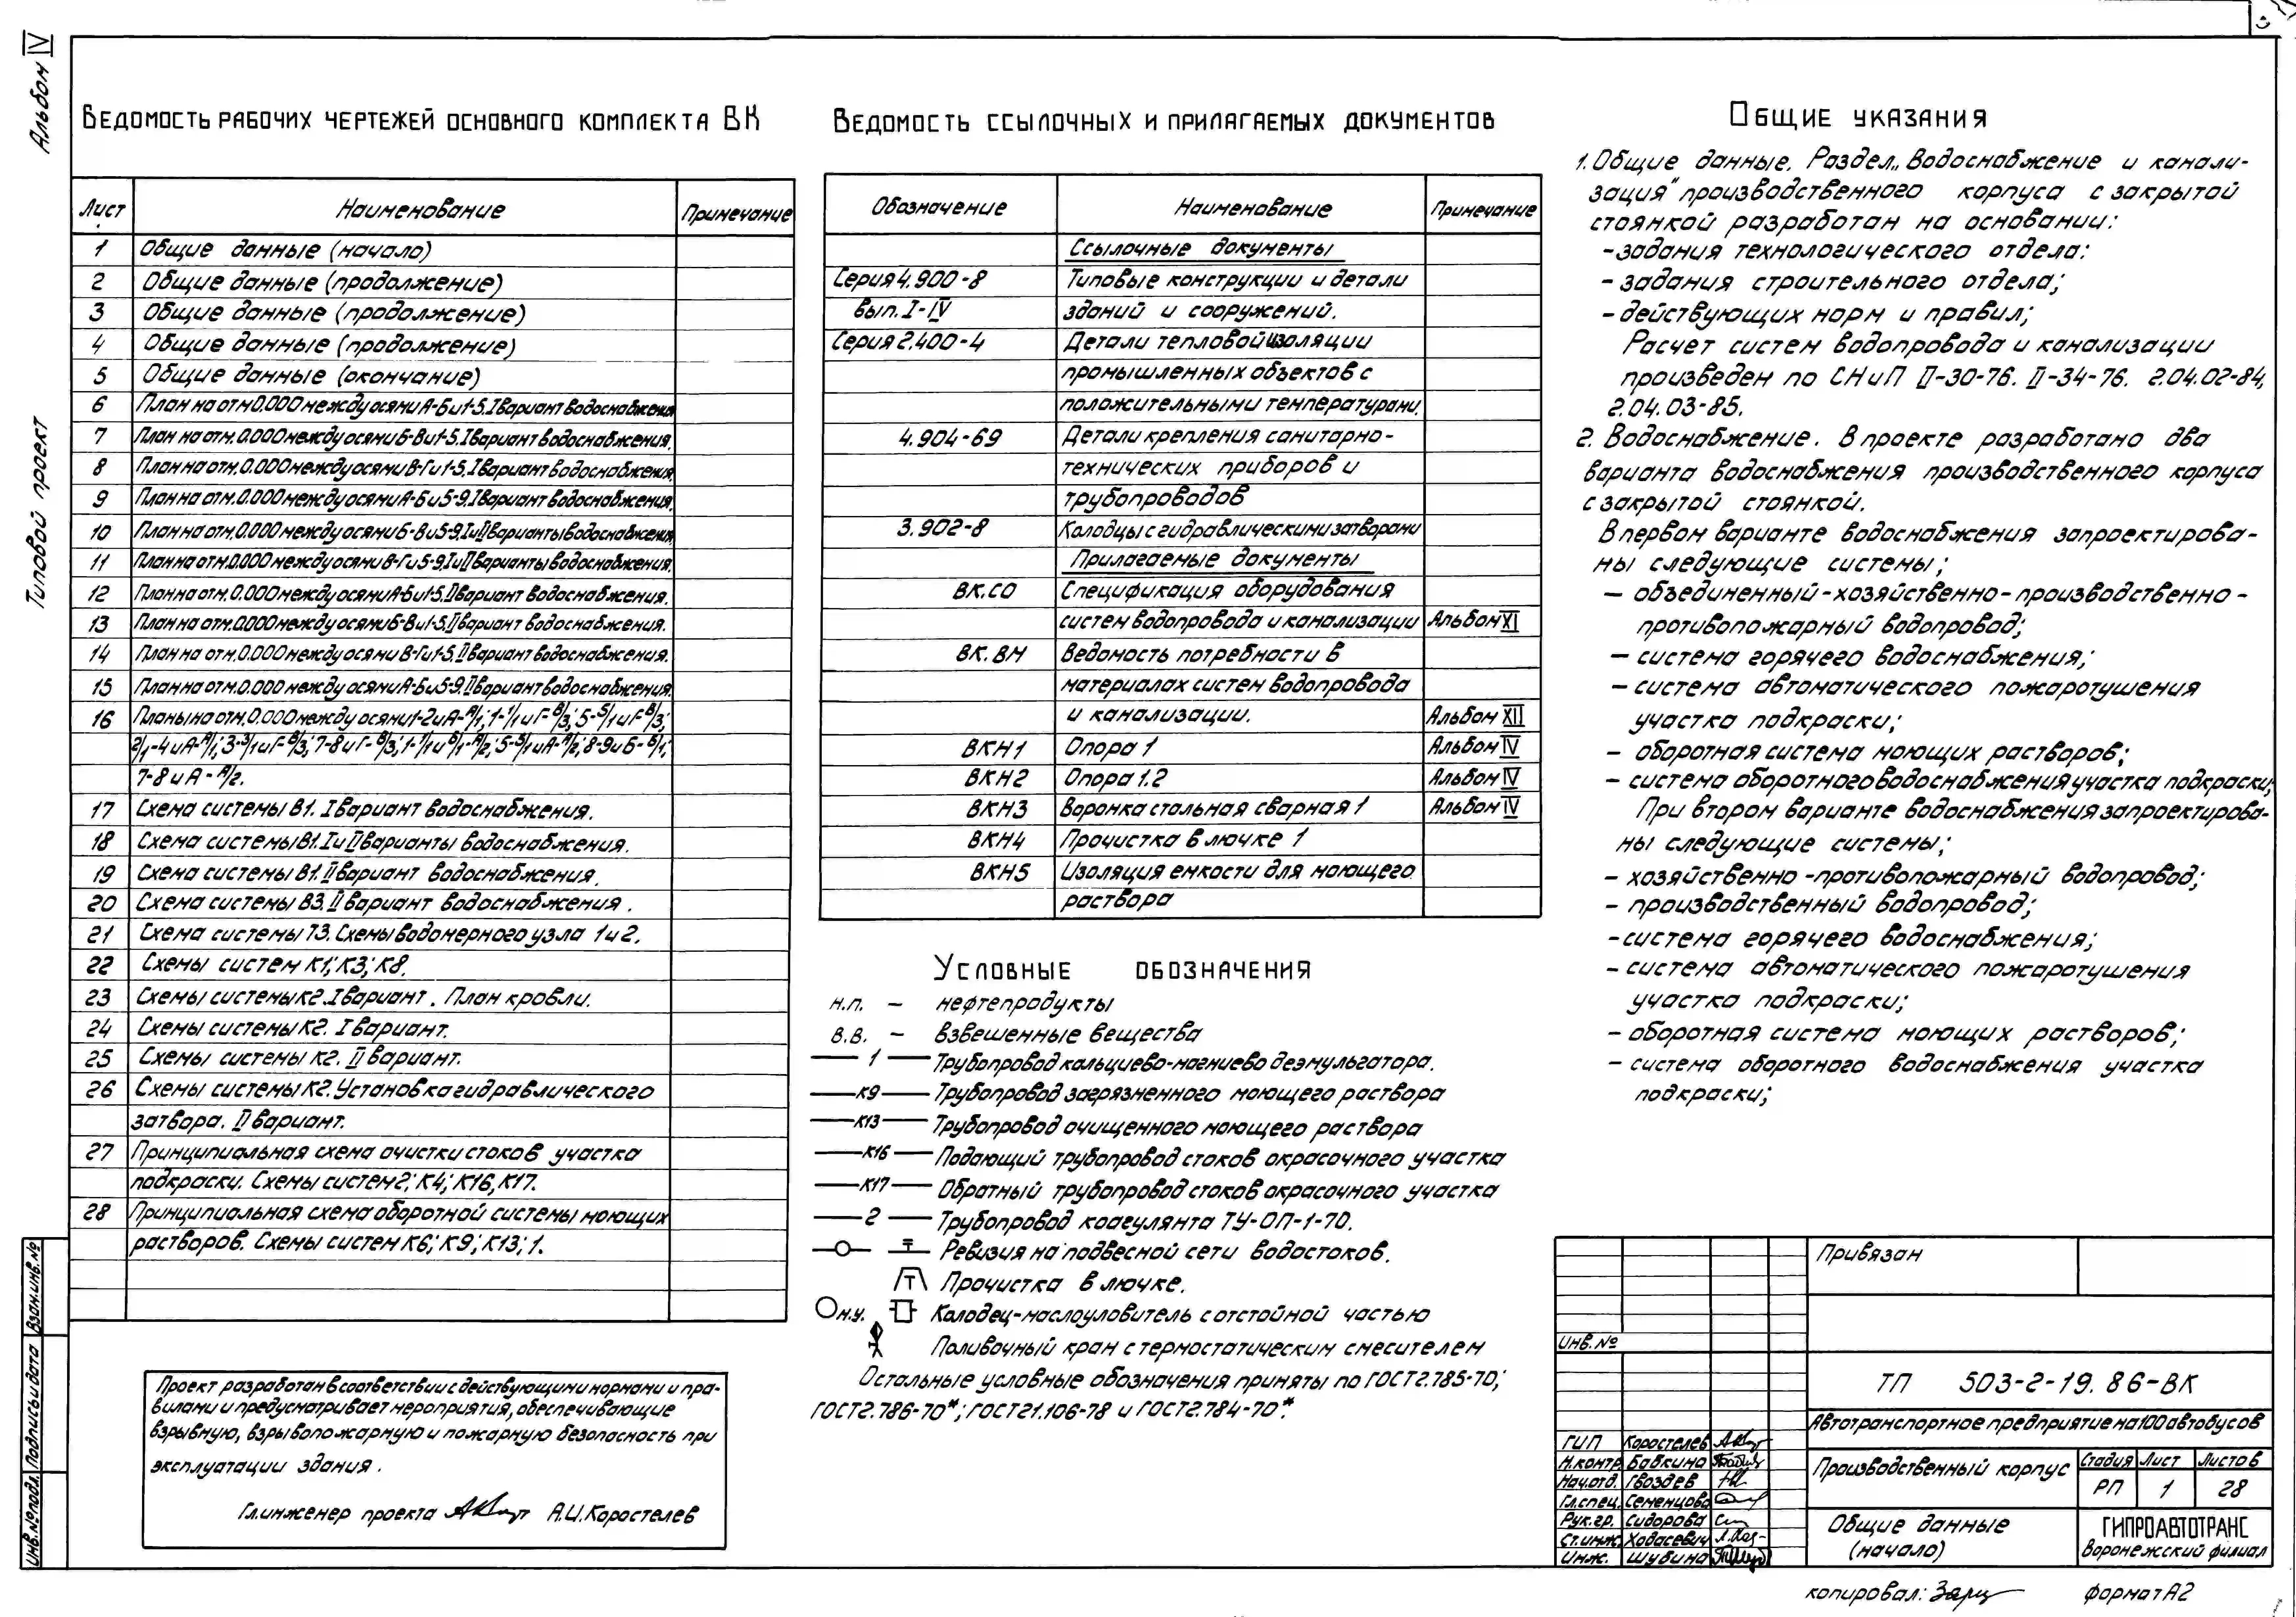 Альбом IV
Типовой проект
3
Ведомость рабочих чертежей основного комплекта ВК
Лист Наименование Примечание
1 Общие данные (начало)
2 Общие данные (продолжение)
3 Общие данные (продолжение)
4 Общие данные (продолжение)
5 Общие данные (окончание)
6 План на отм 0.000 между осями А-Б и 1-5. I вариант водоснабжения
7 План на отм. 0.000 между осями Б-В и 1-5. I вариант водоснабжения.
8 План на отм. 0.000 между осями В-Г и 1-5. I вариант водоснабжения.
9 План на отм. 0.000 между осями А-Б и 5-9. I вариант водоснабжения.
10 План на отм. 0.000 между осями Б-В и 5-9. I и II варианты водоснабжения
11 План на отм. 0.000 между осями В-Г и 5-9. I и II варианты водоснабжения.
12 План на отм. 0.000 между осями А-Б и 1-5. II вариант водоснабжения.
13 План на отм. 0.000 между осями Б-В и 1-5. II вариант водоснабжения.
14 План на отм. 0.000 между осями В-Г и 1-5. II вариант водоснабжения.
15 План на отм. 0.000 между осями А-Б и 5-9. II вариант водоснабжения.
16 Планы на отм. 0.000 между осями 1-2 и А-А/1; 1-1/1 и Г-В/3; 5-5/1 и Г-В/3;
2/1-4 и А-А/1; 3-3/1 и Г-В/3; 7-8 и Г-В/3; 1-1/1 и Б/1-А/2; 5-5/1 и А-А/2; 8-9 и Б-Б/1;
7-8 и А-А/2.
17 Схема системы В1. I вариант водоснабжения.
18 Схема системы В1. I и II варианты водоснабжения.
19 Схема системы В1. II вариант водоснабжения.
20 Схема системы В3. II вариант водоснабжения.
21 Схема системы Т3. Схемы водомерного узла 1 и 2.
22 Схемы систем К1; К3; К8.
23 Схемы системы К2. I вариант. План кровли.
24 Схемы системы К2. I вариант.
25 Схемы системы К2. II вариант.
26 Схемы системы К2. Установка гидравлического
затвора. II вариант.
27 Принципиальная схема очистки стоков участка
подкраски. Схемы систем 2; К4; К16, К17.
28 Принципиальная схема оборотной системы моющих
растворов. Схемы систем К6; К9; К13; 1.
Проект разработан в соответствии с действующими нормами и пра-
вилами и предусматривает мероприятия, обеспечивающие
взрывную, взрывопожарную и пожарную безопасность при
эксплуатации здания.
Гл. инженер проекта А.И. Коростелев
Ведомость ссылочных и прилагаемых документов
Обозначение Наименование Примечание
Ссылочные документы
Серия 4.900-8 Типовые конструкции и детали
вып. I-IV зданий и сооружений.
Серия 2.400-4 Детали тепловой изоляции
промышленных объектов с
положительными температурами.
4.904-69 Детали крепления санитарно-
технических приборов и
трубопроводов
3.902-8 Колодцы с гидравлическими затворами
Прилагаемые документы
ВК.СО Спецификация оборудования
систем водопровода и канализации Альбом XI
ВК.ВМ Ведомость потребности в
материалах систем водопровода
и канализации. Альбом XII
ВКН1 Опора 1 Альбом IV
ВКН2 Опора 1.2 Альбом IV
ВКН3 Воронка стальная сварная 1 Альбом IV
ВКН4 Прочистка в лючке 1
ВКН5 Изоляция емкости для моющего
раствора
Условные обозначения
н.п. – нефтепродукты
в.в. – взвешенные вещества
1 Трубопровод кальциево-магниево деэмульгатора.
К9 Трубопровод загрязненного моющего раствора
К13 Трубопровод очищенного моющего раствора
К16 Подающий трубопровод стоков окрасочного участка
К17 Обратный трубопровод стоков окрасочного участка
2 Трубопровод коагулянта ТУ-ОП-1-70.
Ревизия на подвесной сети водостоков.
Прочистка в лючке.
м.у. Колодец-маслоуловитель с отстойной частью
Поливочный кран с термостатическим смесителем
Остальные условные обозначения приняты по ГОСТ 2.785-70;
ГОСТ 2.786-70*; ГОСТ 21.106-78 и ГОСТ 2.784-70*.
Общие указания
1. Общие данные. Раздел „Водоснабжение и канали-
зация" производственного корпуса с закрытой
стоянкой разработан на основании:
- задания технологического отдела:
- задания строительного отдела;
- действующих норм и правил;
Расчет систем водопровода и канализации
произведен по СНиП II-30-76. II-34-76. 2.04.02-84,
2.04.03-85.
2. Водоснабжение. В проекте разработано два
варианта водоснабжения производственного корпуса
с закрытой стоянкой.
В первом варианте водоснабжения запроектирова-
ны следующие системы;
– объединенный-хозяйственно-производственно-
противопожарный водопровод;
– система горячего водоснабжения;
– система автоматического пожаротушения
участка подкраски;
– оборотная система моющих растворов;
– система оборотного водоснабжения участка подкраски;
При втором варианте водоснабжения запроектирова-
ны следующие системы;
– хозяйственно-противопожарный водопровод;
– производственный водопровод;
– система горячего водоснабжения;
– система автоматического пожаротушения
участка подкраски;
– оборотная система моющих растворов;
– система оборотного водоснабжения участка
подкраски;
Привязан
Инв. №
ТП 503-2-19.86-ВК
Автотранспортное предприятие на 100 автобусов
ГИП Коростелев
Н.контр Бабкина
Нач.отд. Гвоздев
Гл.спец. Семенцова
Рук.гр. Сидорова
Ст.инж. Ходасевич
Инж. Шубина
Производственный корпус
Стадия Лист Листов
РП 1 28
Общие данные
(начало)
ГИПРОАВТОТРАНС
Воронежский филиал
копировал: формат А2
Взам.инв.№
Подпись и дата
Инв.№ подл.